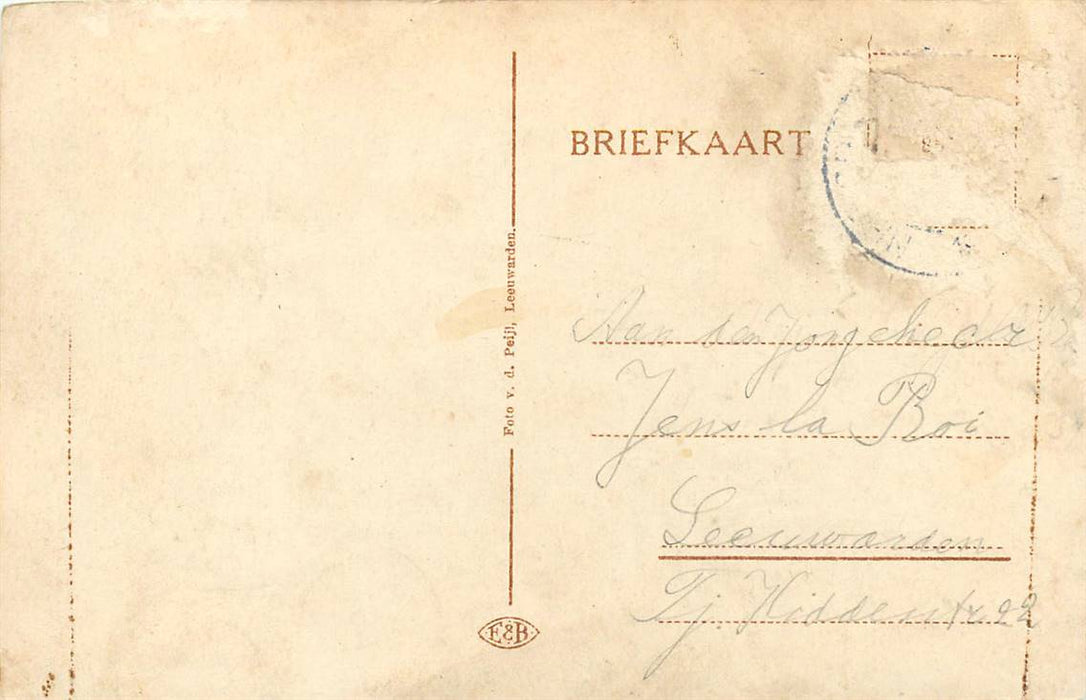 BRIEFKAART
Foto v. d. Peijl, Leeuwarden.
Aan den Jongeheer
Jens la Boi
Leeuwarden
Tj. Hiddestr 22
E&B